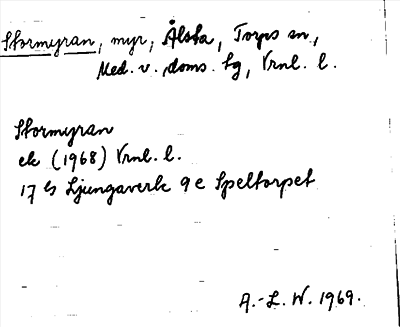 Stormyran, myr, Ålsta, Torps sn,
Med. v. doms. tg, Vrnl. l.
Stormyran
ek (1968) Vrnl. l.
17 G Ljungaverk 9 e Speltorpet
A.-L. W. 1969.